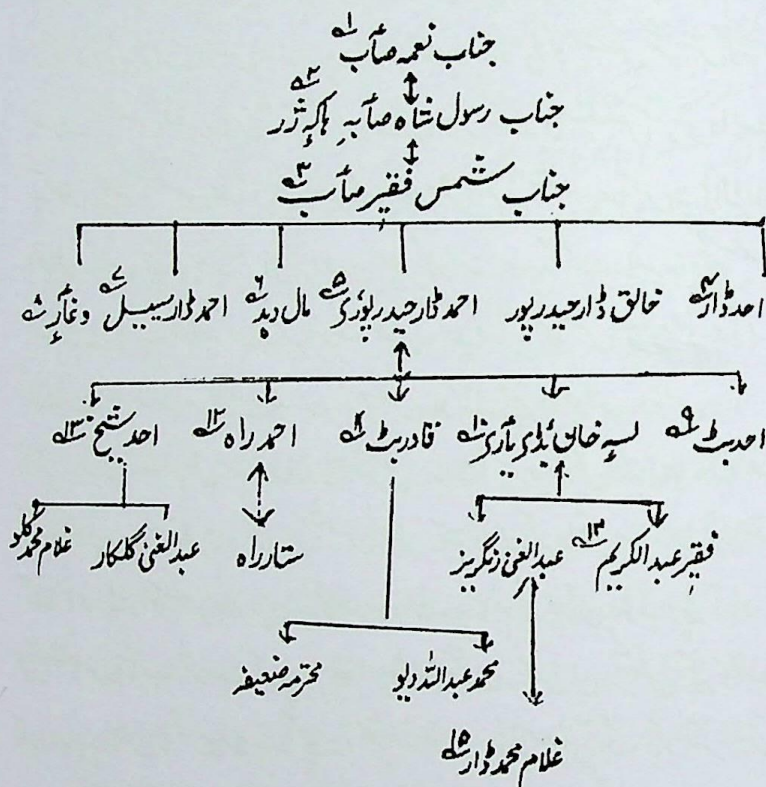 جناب نعمہ صٲب ؎۱
جناب رسول شاہ صٲبہِ ہاکہِ ژر ؎۲
جناب شمس فقیر صٲب ؎۳
احد ڈار ؎۴ خالق ڈار حیدرپور احمد ڈار حیدرپوری ؎۵ مال دید ؎۶ احمد ڈار سیبیل ؎۷ وغٲرِ ؎۸
احد بٹ ؎۹ لسہِ خان یٲری ؎۱۰ قادر بٹ ؎۱۱ احمد راہ ؎۱۲ احد شیخ ؎۱۳
فقیر عبدالکریم ؎۱۴ عبدالغنی زنگریز ستار راہ عبدالغنی گلکار غلام محمد
محمد عبداللہ دیو محترمہ ضعیفہ
غلام محمد ڈار ؎۱۵